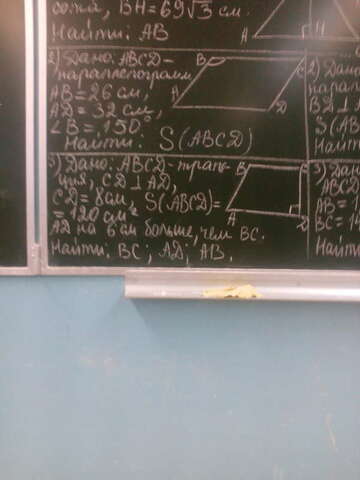 BH = 69√3 см.
Найти: AB
A
H
2) Дано: ABCD -
параллелограмм
AB = 26 см,
AD = 32 см,
∠B = 150°
Найти: S(ABCD)
B
C
A
D
3) Дано: ABCD - трапе-
ция, CD ⊥ AD,
CD = 8 см, S(ABCD) =
= 120 см²
AD на 6 см больше, чем BC.
Найти: BC; AD, AB.
B
C
A
D
2) Дано
парал
BD ⊥
S(AB
Найт
3) Дан
ABCD
AB = 1
BC = 1
Найти